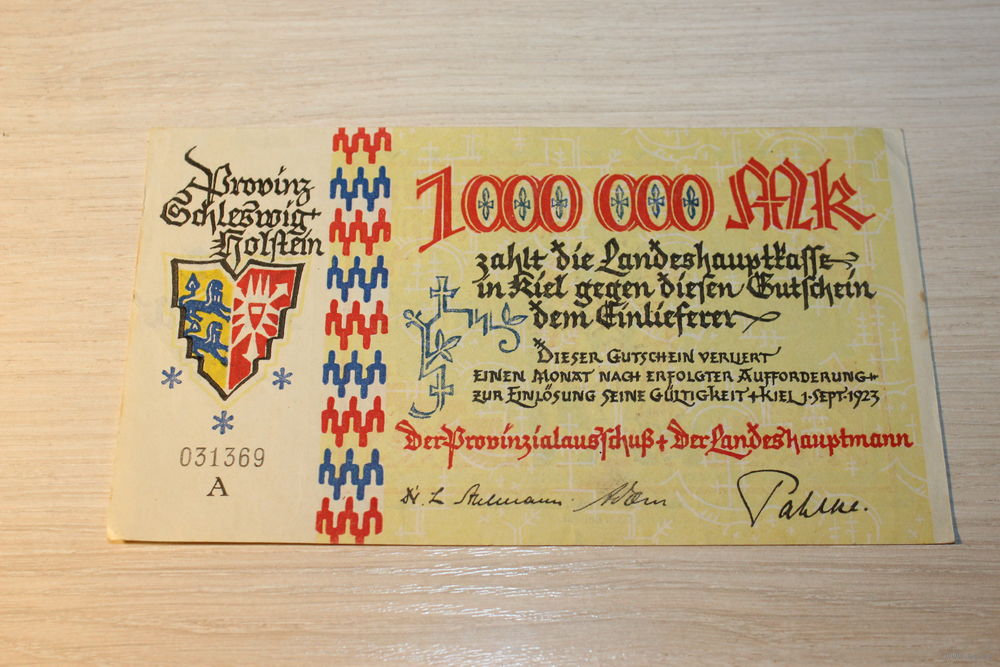 Provinz
Schleswig-
Holstein
031369
A
1000 000 Mk
zahlt die Landeshauptkasse
in Kiel gegen diesen Gutschein
dem Einlieferer
DIESER GUTSCHEIN VERLIERT
EINEN MONAT NACH ERFOLGTER AUFFORDERUNG
ZUR EINLÖSUNG SEINE GÜLTIGKEIT + KIEL 1. SEPT. 1923
Der Provinzialausschuß + Der Landeshauptmann
Pahlke.